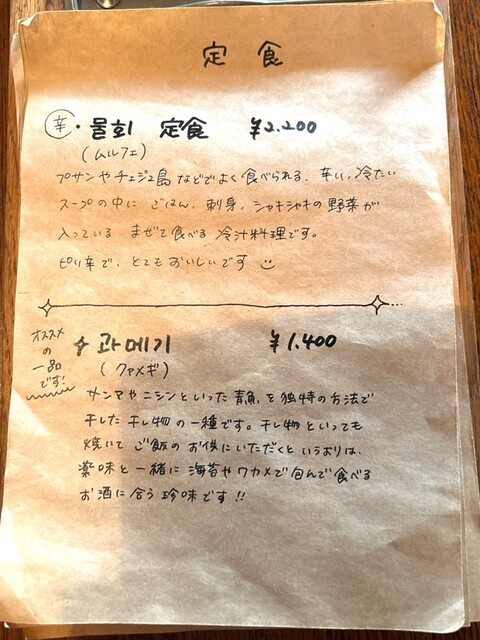 定食
辛・물회 定食 ¥2.200
(ムルフェ)
プサンやチェジュ島などでよく食べられる、辛い、冷たい
スープの中に ごはん、刺身、シャキシャキの野菜が
入っている まぜて食べる 冷汁料理です。
ピリ辛で、とてもおいしいです
オススメの一品です!
과메기 ¥1.400
(クァメギ)
サンマやニシンといった青魚を独特の方法で
干した干し物の一種です。干し物といっても
焼いて ご飯のお供にいただくというよりは、
薬味と一緒に海苔やワカメで包んで食べる
お酒に合う珍味です!!